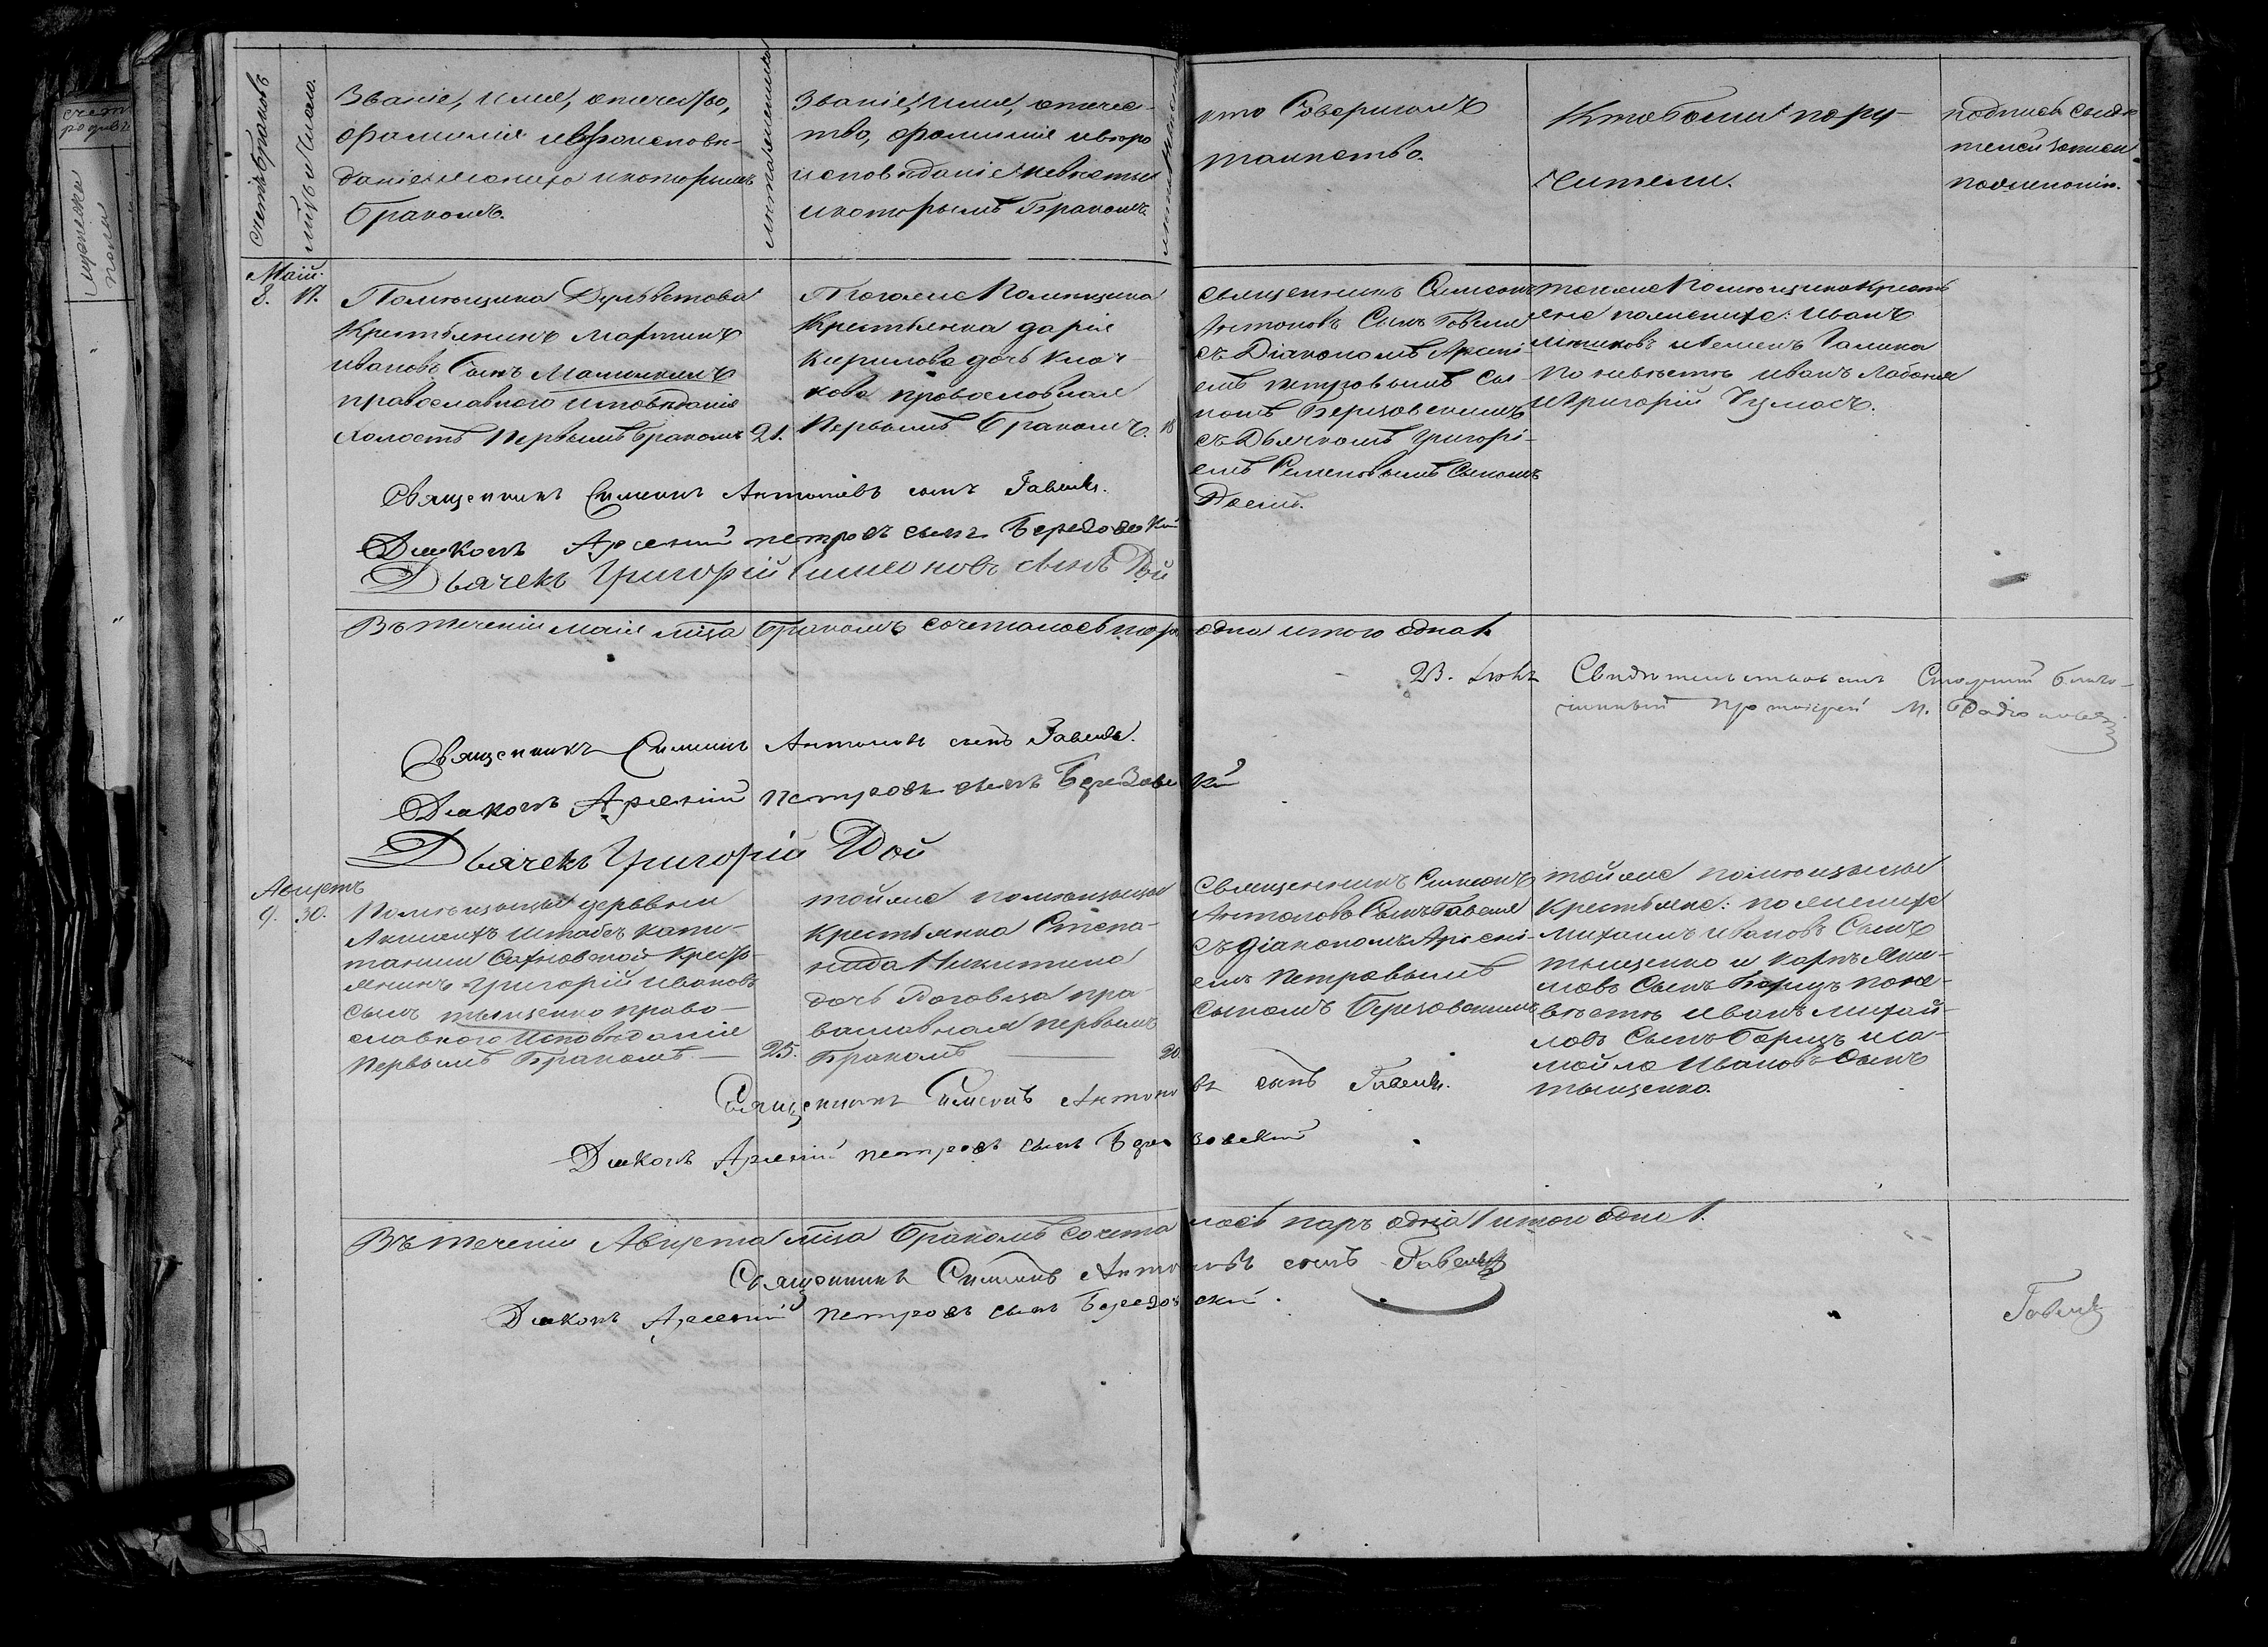 счет
родивш
мужеска
пола
Счетъ браковъ
мцъ и число.
Званіе, имя, отчество,
фамилія и вѣроисповѣ-
даніе жениха и которымъ
бракомъ.
лѣта жениха
Званіе, имя, отчес-
тво, фамилія и вѣро
исповѣданіе невѣсты
и которымъ бракомъ
кто совершалъ
таинство.
Кто были пору-
чители.
подпись свидѣ
телей записи
по желанію.
Маій.
8. 17.
Помѣщика
Крестьянинъ Мартинъ
Ивановъ сынъ
православного исповѣданія
холостъ первымъ бракомъ 21.
Того же помѣщика
Крестьянка дарія
Кирилова дочь Клоч-
кова православная
первымъ бракомъ. 18
священникъ Симеонъ
Антоновъ сынъ Гавеля
съ Діакономъ Арсені-
емъ петровымъ сы-
номъ Березовскимъ
съ Дьячкомъ Григорі-
емъ Семеновымъ сыномъ
Доемъ.
того же помѣщика крестья
яне по женихе: Иванъ
и Семенъ Галика
по невѣсте Иванъ
и Григорій Гузмасъ.
Священникъ Симеонъ Антоновъ сынъ Гавеля.
Диаконъ Арсений петровъ сынъ Березовскій
Дьячекъ Григорій Симеоновъ сынъ Дой
Въ теченіи маія мца бракомъ сочеталось паръ одна итого одна 1.
23. Свидѣтельствовалъ Старший благо-
чинный протоіерей М.
Священникъ Симеонъ Антоновъ сынъ Гавеля.
Диаконъ Арсений петровъ сынъ Березовский
Дьячекъ Григорій Дой
Августъ
9. 30.
Помѣщицы деревни
штабсъ капи-
танши Сахновской кресть
янинъ Григорій Ивановъ
сынъ тыщенко право-
славного исповѣданія
первымъ бракомъ — 25.
той же помѣщицы
крестьянка Степа-
нида Никитина
дочь Роговца пра-
вославная первымъ
бракомъ — 20.
Священникъ Симеонъ
Антоновъ сынъ Гавеля
съ діакономъ Арсені-
емъ петровымъ
сыномъ Березовскимъ
той же помѣщицы
крестьяне: по женихе
Михаилъ Ивановъ сынъ
тыщенко и карпъ Яки-
мовъ сынъ Борщъ по не-
вѣсте Иванъ Михай-
ловъ сынъ Борщъ и са-
мойло Ивановъ сынъ
тыщенко.
Священникъ Симеонъ Антоновъ сынъ Гавеля.
Диаконъ Арсений петровъ сынъ Березовский
Въ теченіи Августа мца бракомъ сочеталось паръ одна 1 итого одна 1.
Священникъ Симеонъ Антоновъ сынъ Гавеля
Диаконъ Арсений петровъ сынъ Березовский.
Гавеля